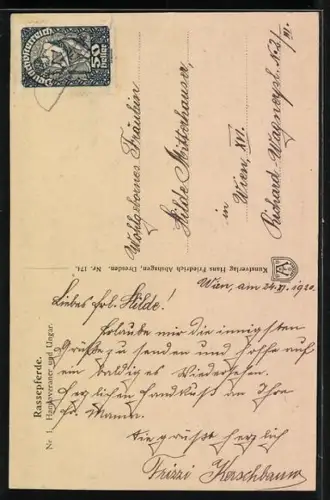 Deutschösterreich
50
Heller
Wohlgebornes Fräulein
Hilde Mitterhauser,
in
Wien, XVI.
Richard-Wagnerpl. N. 2/
III.
Kunstverlag Hans Friedrich Abshagen, Dresden. Nr. 174.
Rassepferde.
1. Hannoveraner und Ungar.
2.
Wien, am 24. VI. 1920.
Liebes Frl. Hilde!
Erlaube mir die innigsten
Grüße zu senden und hoffe auf
ein baldiges Wiedersehen.
Herzlichen Handkuß an Ihre
Fr. Mama.
Sie grüßt herzlich
Frizzi Kerschbaum